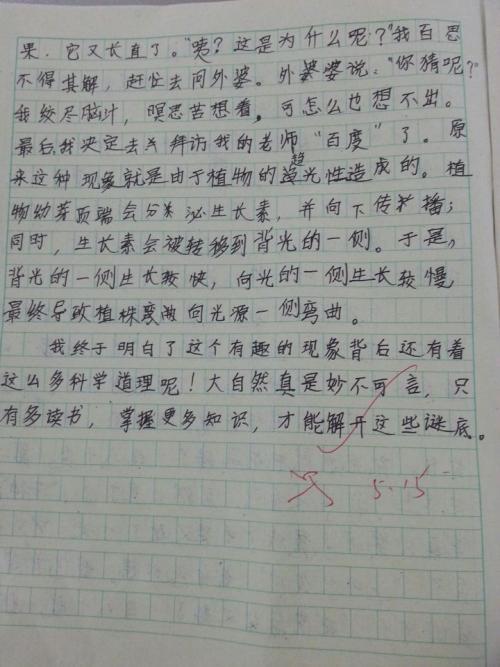 果.它又长直了。"咦?这是为什么呢?"我百思
不得其解,赶忙去问外婆。外婆婆说:"你猜呢?"
我绞尽脑汁,暝思苦想着,可怎么也想不出。
最后我决定去拜访我的老师"百度"了。原
来这种现象就是由于植物的趋光性造成的。植
物幼芽顶端会分泌生长素,并向下传播;
同时,生长素会被转移到背光的一侧。于是,
背光的一侧生长较快,向光的一侧生长较慢,
最终导致植株向光源一侧弯曲。
我终于明白了这个有趣的现象背后还有着
这么多科学道理呢!大自然真是妙不可言,只
有多读书,掌握更多知识,才能解开这些谜底。
5.15